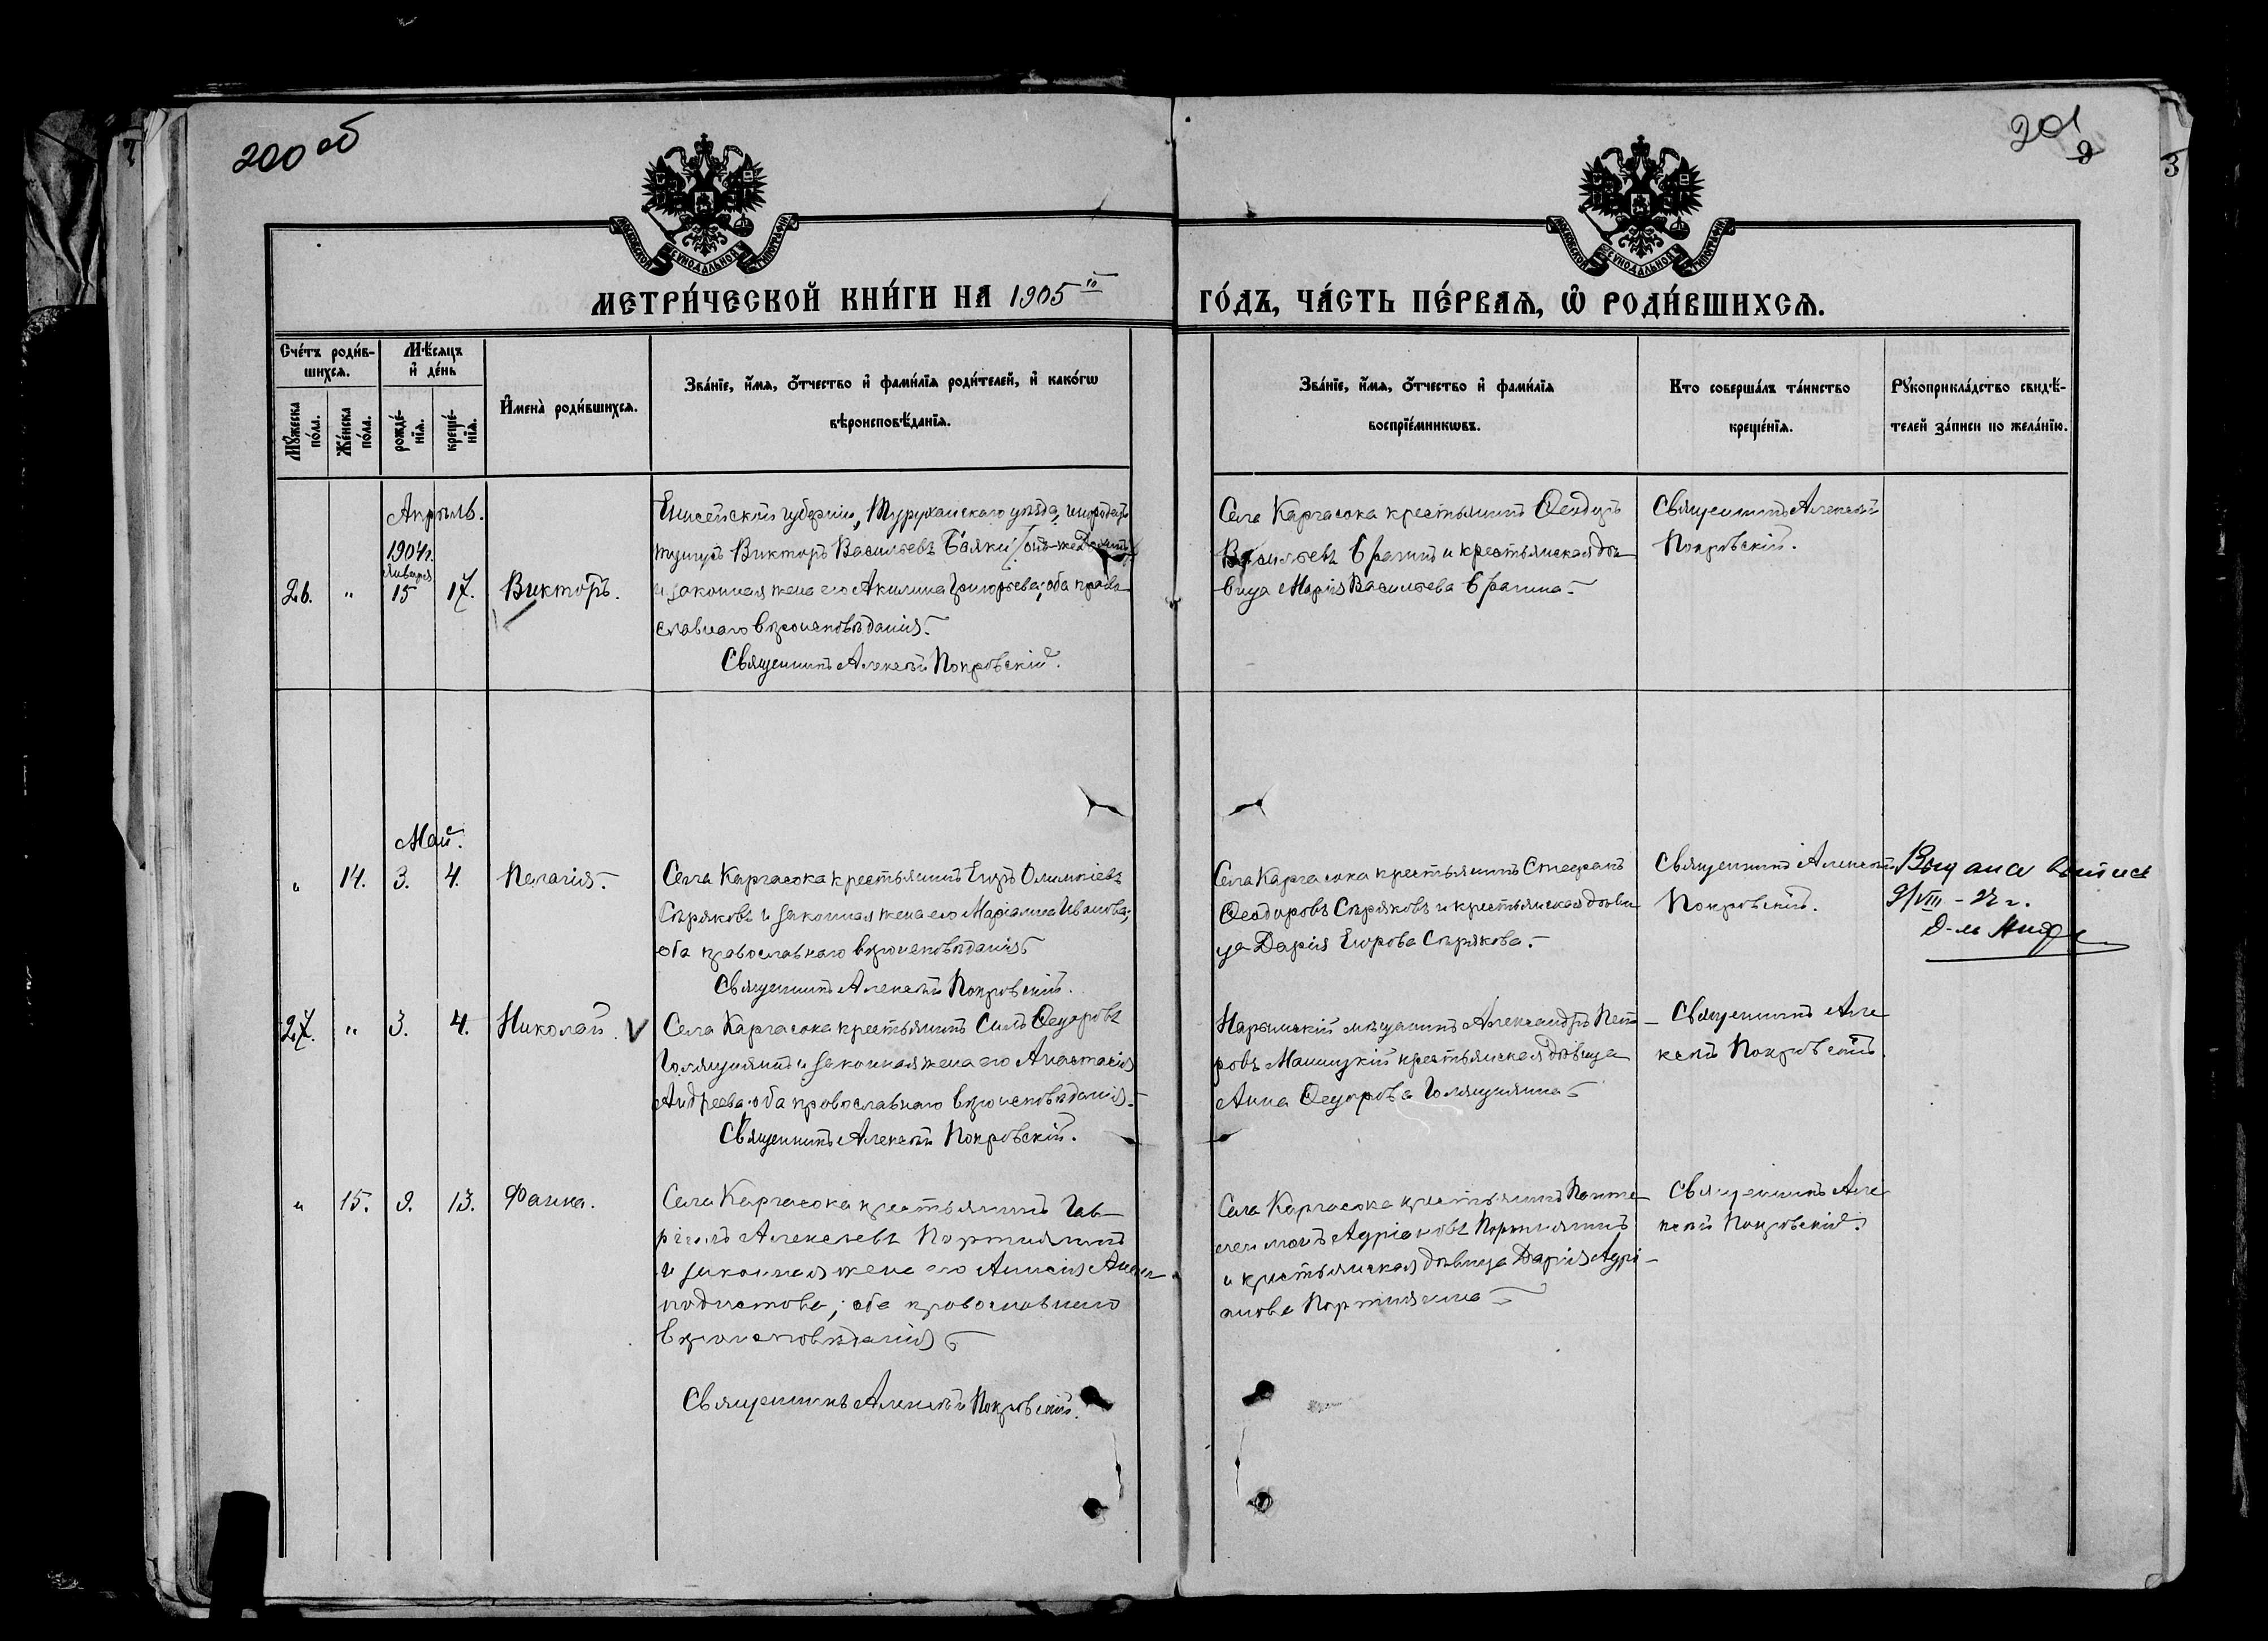 200 об
201
2
3
МОСКОВСКОЙ СѴНОДАЛЬНОЙ ТИПОГРАФІИ
МОСКОВСКОЙ СѴНОДАЛЬНОЙ ТИПОГРАФІИ
МЕТРИ́ЧЕСКОЙ КНИ́ГИ НА 1905 й
ГО́ДЪ, ЧА́СТЬ ПЕ́РВАѦ, Ѡ҆ РОДИ́ВШИХСѦ.
Сче́тъ роди́в-
шихсѧ.
Мѣ́сѧцъ
и҆ де́нь
Мꙋ́жеска
по́ла.
Же́нска
по́ла.
рожде́-
нїѧ.
креще́-
нїѧ.
И҆мена̀ роди́вшихсѧ.
Зва́нїе, и҆́мѧ, о҆́тчество и҆ фами́лїѧ роди́телей, и҆ како́гѡ
вѣроисповѣ́данїѧ.
Зва́нїе, и҆́мѧ, о҆́тчество и҆ фами́лїѧ
воспрїе́мникѡвъ.
Кто соверша́лъ та́инство
креще́нїѧ.
Рꙋкоприкла́дство свидѣ́-
телей за́писи по жела́нїю.
Апрѣль.
1904 г.
января
26. " 15 17. Викторъ.
Енисейской губерніи, Туруханскаго уѣзда, инородецъ
Викторъ Васильевъ Баяки
и законная жена его Акилина Григорьева; оба право-
славнаго вѣроисповѣданія.
Священникъ Алексѣй Покровскій.
Села Каргасока крестьянинъ Ѳеодоръ
Васильевъ и крестьянская дѣ-
вица Марія Васильева
Священникъ Алексѣй
Покровскій.
Май.
" 14. 3. 4. Пелагія.
Села Каргасока крестьянинъ Егоръ Олимпіевъ
Сѣряковъ и законная жена его Маріанна Иванова;
оба православнаго вѣроисповѣданія
Священникъ Алексѣй Покровскій.
Села Каргасока крестьянинъ Стефанъ
Ѳеодоровъ Сѣряковъ и крестьянская дѣви-
ца Дарія Егорова Сѣрякова.
Священникъ Алексѣй
Покровскій.
Выдана выпись
9/VIII - 22 г.
27. " 3. 4. Николай. V
Села Каргасока крестьянинъ Ѳедоровъ
Голящихинъ и законная жена его Анастасія
Андреева; оба православнаго вѣроисповѣданія.
Священникъ Алексѣй Покровскій.
Нарымскій мѣщанинъ Александръ Пет-
ровъ Маницкій крестьянская дѣвица
Анна Ѳедорова
Священникъ Але-
ксѣй Покровскій.
" 15. 9. 13. Фаина.
Села Каргасока крестьянинъ Гав-
ріилъ Алексѣевъ
и законная жена его Анисія
оба православнаго
вѣроисповѣданія
Священникъ Алексѣй Покровскій.
Села Каргасока крестьянинъ Панте-
леимонъ Адріановъ
и крестьянская дѣвица Дарія Адрі-
анова
Священникъ Але-
ксѣй Покровскій.